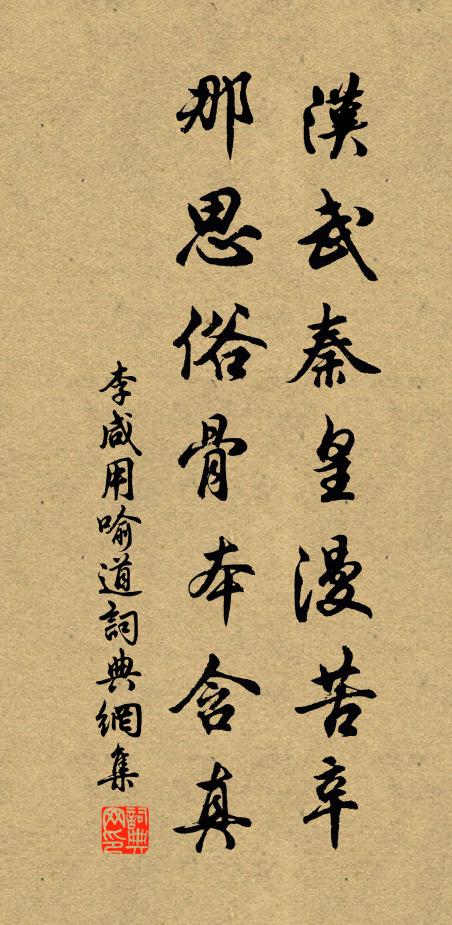 漢武秦皇漫苦辛
那思俗骨本含真
李咸用喻道詞典網集
詞典网印